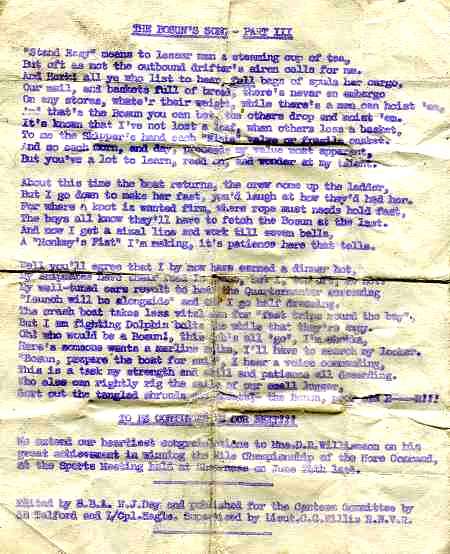 THE BOSUN'S SONG - PART III
"Stand Easy" means to lesser men a steaming cup of tea,
But oft as not the outbound drifter's siren calls for me.
And Hark! all ye who list to hear, full bags of spuds her cargo,
Our mail, and baskets full of bread, there's never an embargo
On any stores, whate'r their weight, while there's a man can hoist 'em,
that's the Bosun you can bet, the others drop and moist 'em.
It's known that I've not lost a loaf, when others lose a basket,
To me the Skipper's hand each casket.
And so each morn, and day proceeds, my value most apparent,
But you've a lot to learn, read on, and wonder at my talent.
About this time the boat returns, the crew come up the ladder,
But I go down to make her fast, you'd laugh at how they'd had her.
For where a knot is wanted firm, where rope must needs hold fast,
The boys all know they'll have to fetch the Bosun at the last.
And now I get a sisal line and work till seven bells,
A "Monkey's Fist" I'm making, it's patience here that tells.
Well you'll agree that I by now have earned a dinner hot,
My well-tuned ears revolt to hear the Quartermaster screaming
"Launch will be alongside" and I go half dreaming.
The crash boat takes less vital men for "fast trips round the bay",
But I am fighting Dolphin bolts the while that they're away.
Oh! who would be a Bosun!, this
Here's someone wants a marline I'll have to search my locker.
"Bosun, prepare the boat for I hear a voice commanding,
This is a task my strength and skill and patience all demanding.
Who else can rightly rig the sails of our small lugger,
Sort out the tangled shrouds, the Bosun,
TO BE CONTINUED IN OUR NEXT!!!
We extend our heartiest congratulations to Mne.D.R.Williamson on his
great achievement in winning the Mile Championship of the Nore Command,
at the Sports Meeting held at Sheerness on June 24th last.
Edited by S.B.A. W.J.Day and published for the Canteen Committee by
AB Telford and L/Cpl.Eagle. Supervised by Lieut.C.C.Willis R.N.V.R.